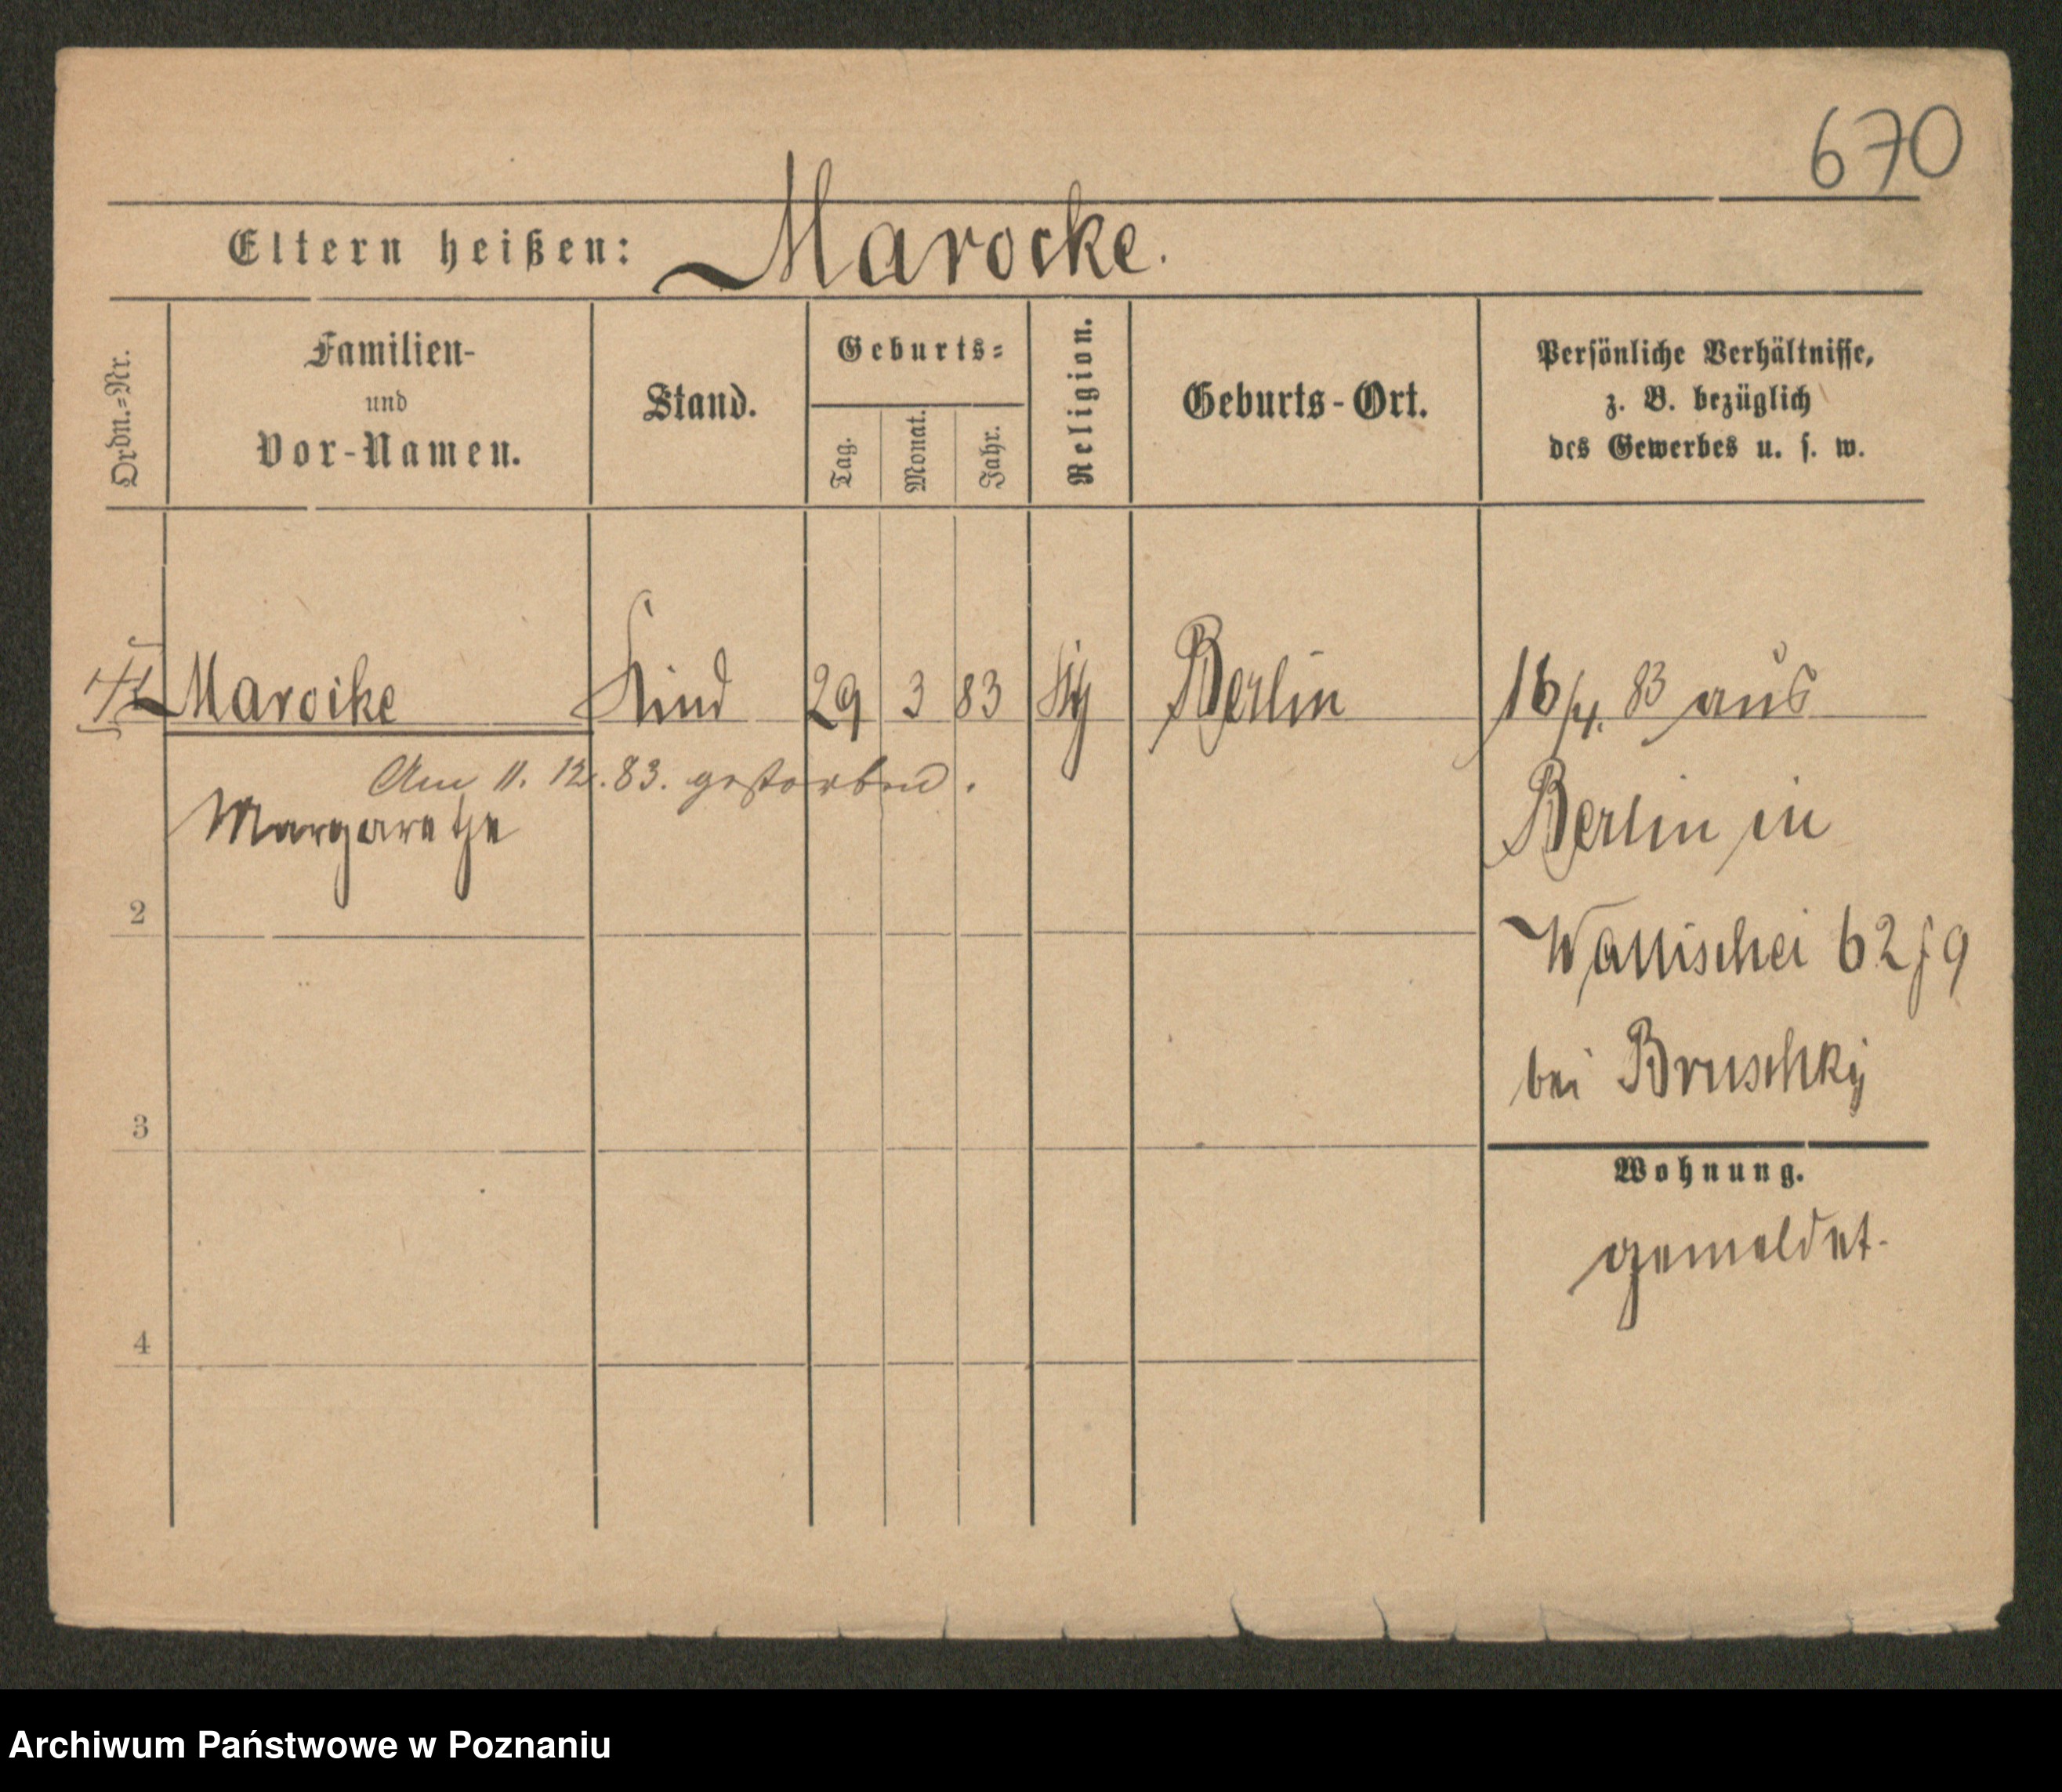 670
Eltern heißen: Marocke.
Ordn.=Nr.
Familien-
und
Vor-Namen.
Stand.
Geburts=
Tag.
Monat.
Jahr.
Religion.
Geburts-Ort.
Persönliche Verhältnisse,
z. B. bezüglich
des Gewerbes u. s. w.
Marocke Kind 29 3 83 Berlin 16/4. 83 aus
Am 11. 12. 83. gestorben.
Margarethe
Berlin in
2
Wallischei 62 f 9
bei Bruschky
3
Wohnung.
gemeldet.
4
Archiwum Państwowe w Poznaniu